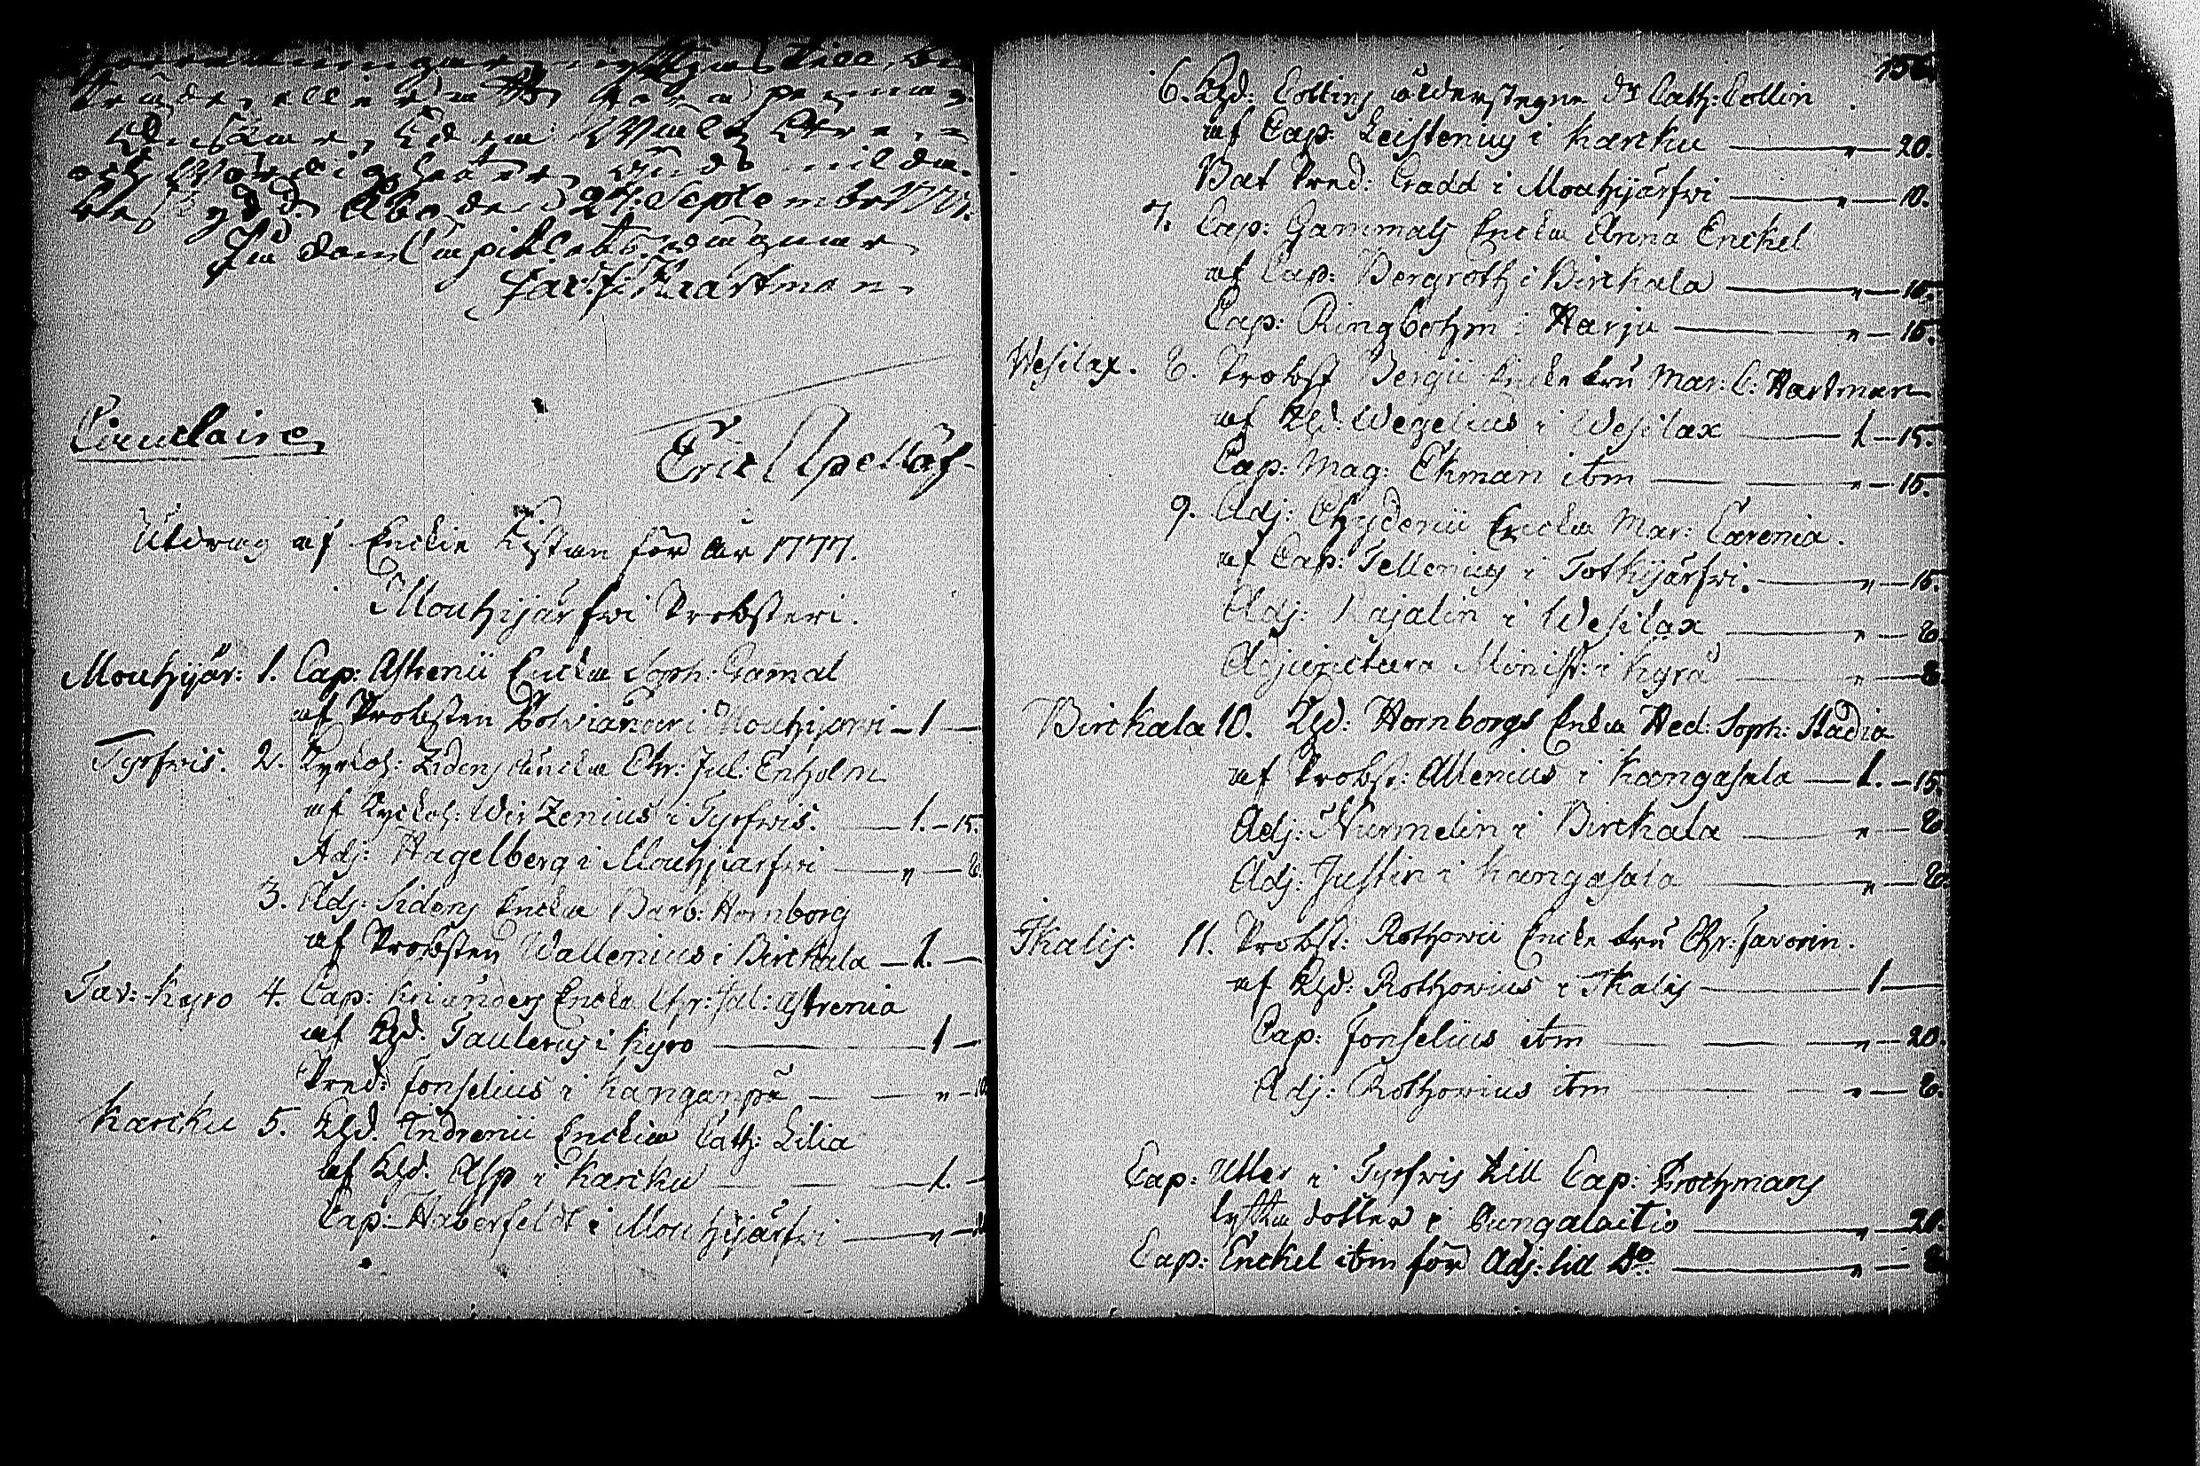 och Wördigheter Guds milda
beskydd. Åbo den 27. Septembr 1777.
På Dom Capitlets wägnar
Jac. J. Haartman
Circulaire
Eric Ipellöf
Utdrag af Enckie Kistan för år 1777.
Mouhijärfwi Probsteri.
Mouhijär: 1. Cap: Astrenii Encka Soph: Gamal
af Probsten Polviander i Mouhijerwi — 1 —
Tyrfwis. 2. Kyrkoh: Zidens Encka Chr: Jul: Enholm
af Kyrkoh: Wirzenius i Tyrfwis. — 1. — 15.
Adj: Hagelberg i Mouhijärfwi — „ — 8.
3. Adj: Sidens Encka Barb: Hornborg
af Probsten Wallenius i Birckala — 1. —
Tav: Kyro 4. Cap: Krianders Encka Chr: Jul: Astrenia
af Khd: Taulerus i Kyro — 1 —
Pred: Jonselius i Kanganpä — „ — 10
Karcku 5. Khd. Indrenii Enckia Cath: Lilia
af Khd: Asp i Karcku — 1. —
Cap: Haberfeldt i Mouhijärfwi — „ —
156.
6. Khd: Collins ålderstegne Dr Cath: Collin
af Cap: Leistenius i Karcku — „ — 20.
Bat Pred: Gadd i Mouhijärfwi — „ — 10.
7. Cap: Gammals Encka Anna Enckel
af Cap: Bergroth i Birckala — „ — 15.
Cap: Ringbohm i Harju — „ — 15.
Wesilax. 8. Probst Bergii Encke fru Mar: C: Hartman
af Khd: Wegelius i Wesilax — 1 — 15.
Cap: Mag: Ekman ibm — „ — 15.
9. Adj: Chydenii Encka Mar: Carenia.
af Cap: Tellenius i Tothijärfwi. — „ — 15.
Adj: Kajalin i Wesilax — „ — 8.
Adjunctura Minist: i Kyro — „ — 8.
Birckala 10. Khd: Hornborgs Encka Hed: Soph: Stadia
af Probst: Allenius i Kangasala — 1. — 15.
Adj: Nurmelin i Birckala — „ — 8.
Adj: Justin i Kangasala — „ — 8.
Ikalis: 11. Probst: Rothovii Encke fru Chr: Favorin.
af Khd: Rothovius i Ikalis — 1 —
Cap: Jonselius ibm — „ — 20.
Adj: Rothovius ibm — „ — 8.
Cap: Utter i Tyrfwis till Cap: Krochmans
lytta dotter i Cungalaitio — „ — 20.
Cap: Enckel ibm för Adj: tid Do: — „ — 8.